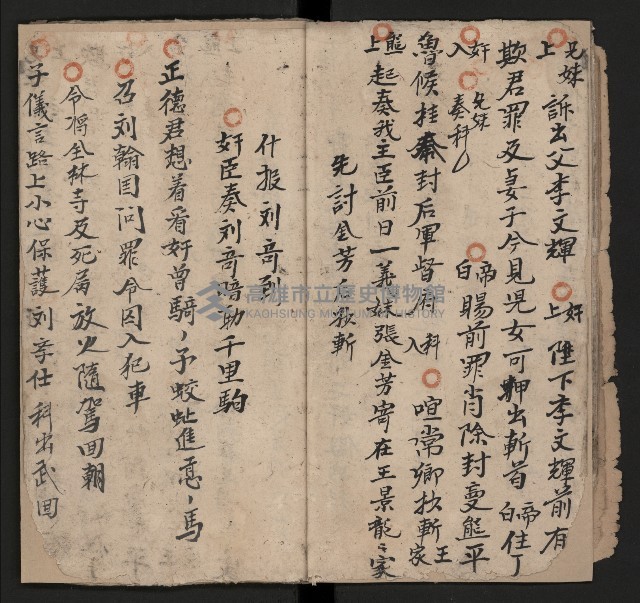 兄妹上 訴出父李文輝 奸上 陛下李文輝前有
欺君罪及妻子今見児女可押出斬首 帝白 住了
奸入 兄妹奏科 帝白 賜前罪肖除封變熊平
魯候挂秦封后軍督府 科入 喧常卿拟斬 王家
熊上 起奏我主臣前日一義妹張金芳寄在王景龍家
先討金芳后教斬
什报刘奇到
奸臣奏刘奇暗助千里駒
正德君想着看奸曾騎予蛟虵進惡馬
召刘翰囯问罪令囚入犯車
令将全林寺及死屍放火隨駕回朝
子儀言路上小心保護刘奇仕 科出武回
高雄市立歷史博物館
KAOHSIUNG MUSEUM OF HISTORY